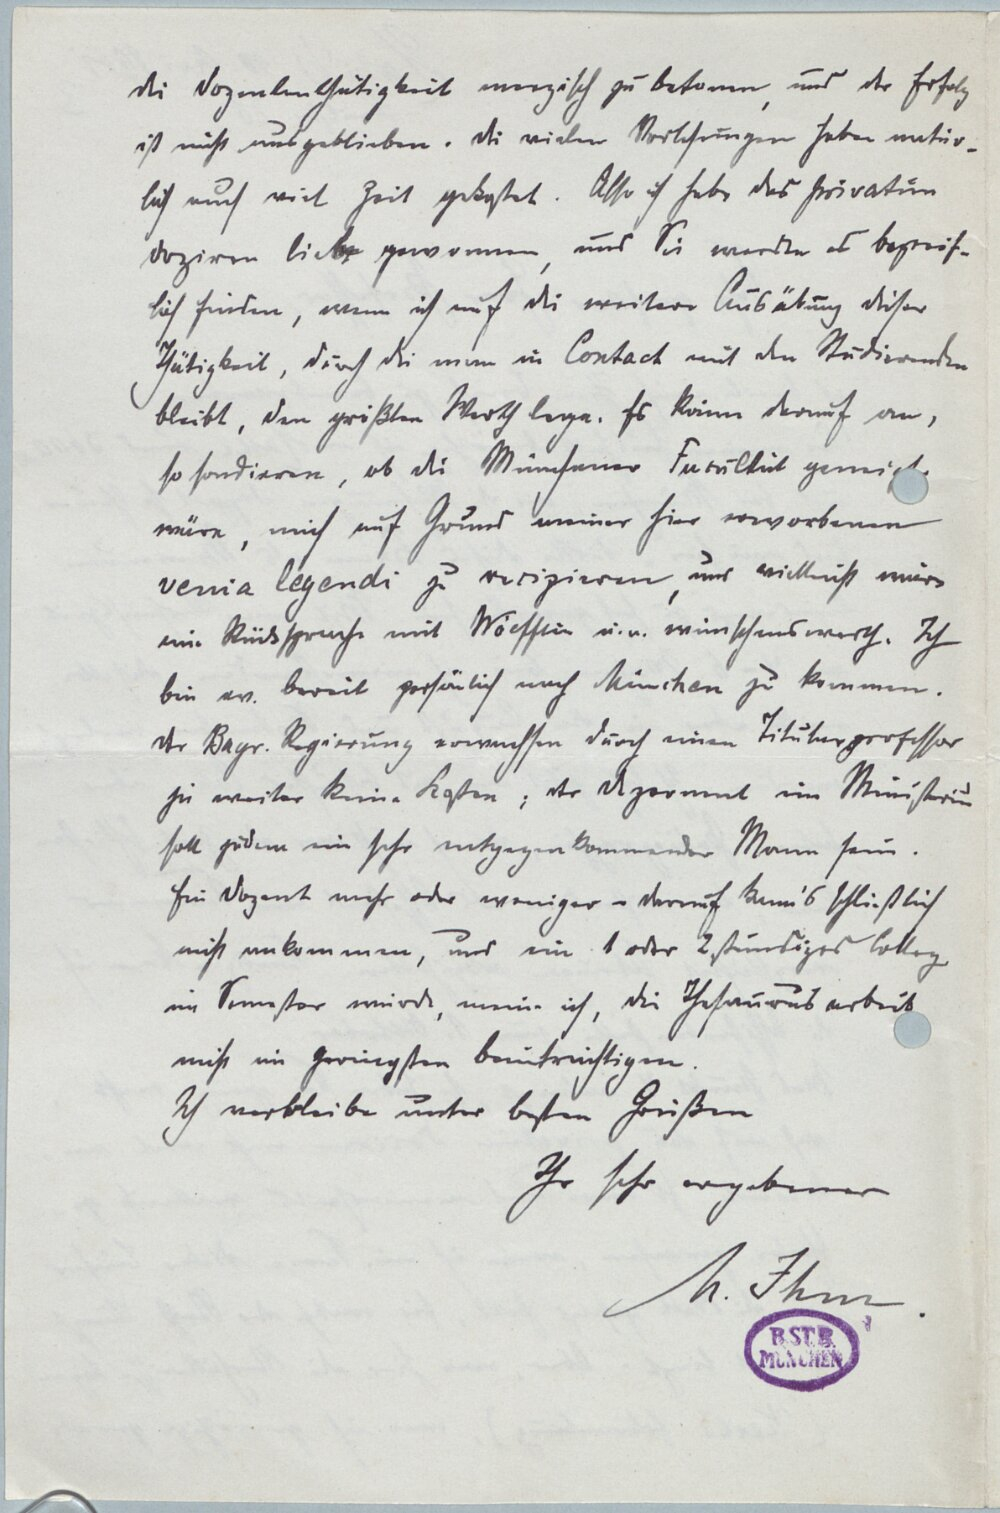 die Dozententhätigkeit energisch zu betonen, und der Erfolg
ist nicht ausgeblieben. Die vielen Vorlesungen haben natür-
lich auch viel Zeit gekostet. Also ich habe das Privatim
doziren lieb gewonnen, und Sie werden es begreif-
lich finden, wenn ich auf die weitere Ausübung dieser
Thätigkeit, durch die man in Contact mit den Studierenden
bleibt, den größten Werth lege. Es käme darauf an,
zu sondieren, ob die Münchener Facultät geneigt
wäre, mich auf Grund meiner hier erworbenen
venia legendi zu recipieren, und vielleicht wäre
eine Rücksprache mit Wölfflin u.a. wünschenswerth. Ich
bin ev. bereit persönlich nach München zu kommen.
Der Bayr. Regierung erwachsen durch einen Titularprofessor
ja weiter keine Kosten; der Dezernent im Ministerium
soll zudem ein sehr entgegenkommender Mann sein.
Ein Dozent mehr oder weniger – darauf kann's schließlich
nicht ankommen, und ein 1 oder 2stündiges Colleg
im Semester würde, meine ich, die Thesaurusarbeit
nicht im geringsten beeinträchtigen.
Ich verbleibe unter besten Grüßen
Ihr sehr ergebener
M. Ihm.
B.ST.B.
MÜNCHEN